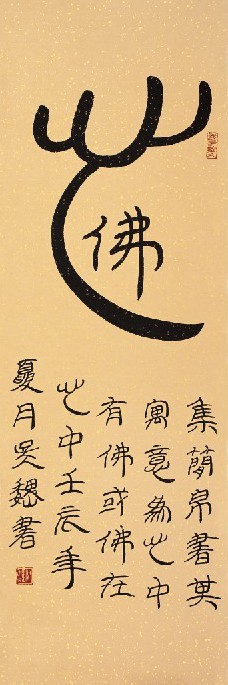 心
佛
集簡帛書其
寓意為心中
有佛或佛在
心中壬辰年
夏月吴書